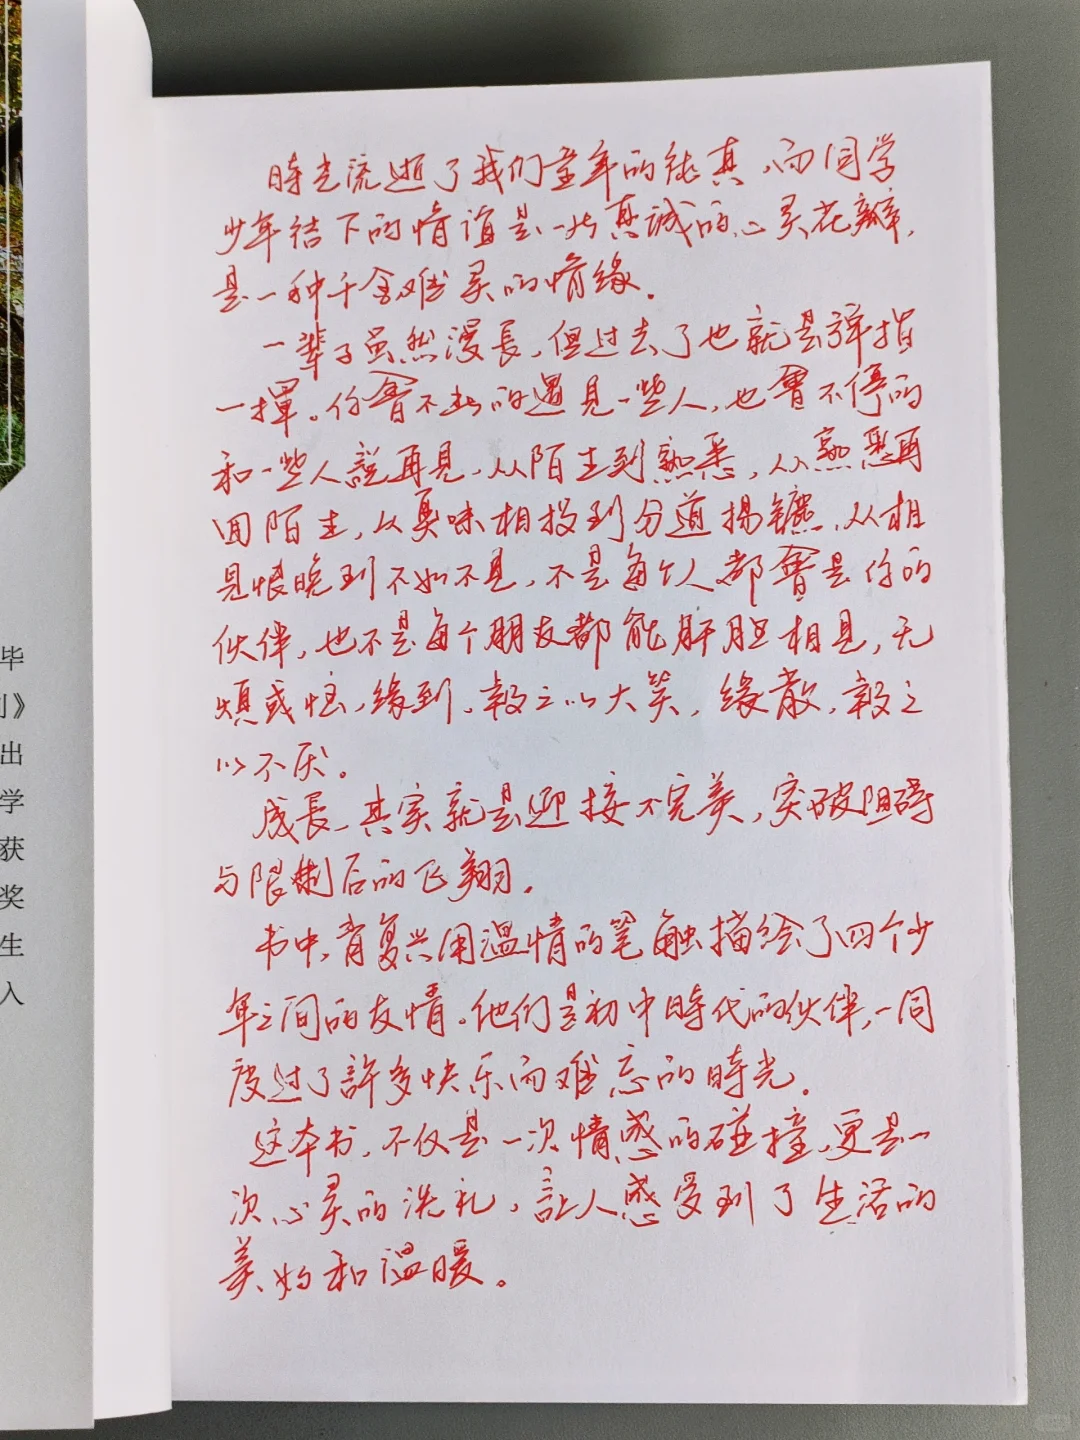 時光流逝了我们童年的纯真，而同学
少年结下的情谊是一些真诚的心灵花瓣，
是一种千金难买的情缘。
一辈子虽然漫長，但过去了也就是弹指
一揮。你會不断的遇見一些人，也會不停的
和一些人説再見，从陌生到熟悉，从熟悉再
回陌生，从臭味相投到分道揚鑣，从相
見恨晚到不如不見，不是每个人都會是你的
伙伴，也不是每个朋友都能肝胆相見，无
煩或恼，缘到，報之以大笑，缘散，報之
以不厌。
成長，其实就是迎接不完美，突破阻碍
与限制后的飞翔。
书中，肖复兴用温情的笔触描绘了四个少
年之间的友情。他们是初中時代的伙伴，一同
度过了許多快乐而难忘的時光。
这本书，不仅是一次情感的碰撞，更是一
次心灵的洗礼，讓人感受到了生活的
美好和温暖。
毕
刂》
出
学
获
奖
生
入